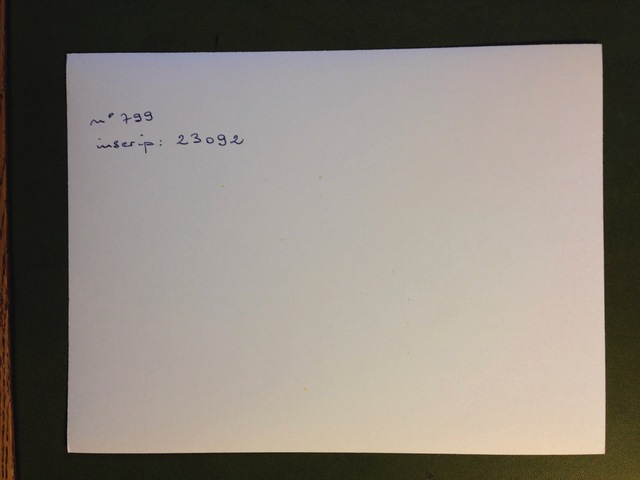 n° 799
inscrip: 23092